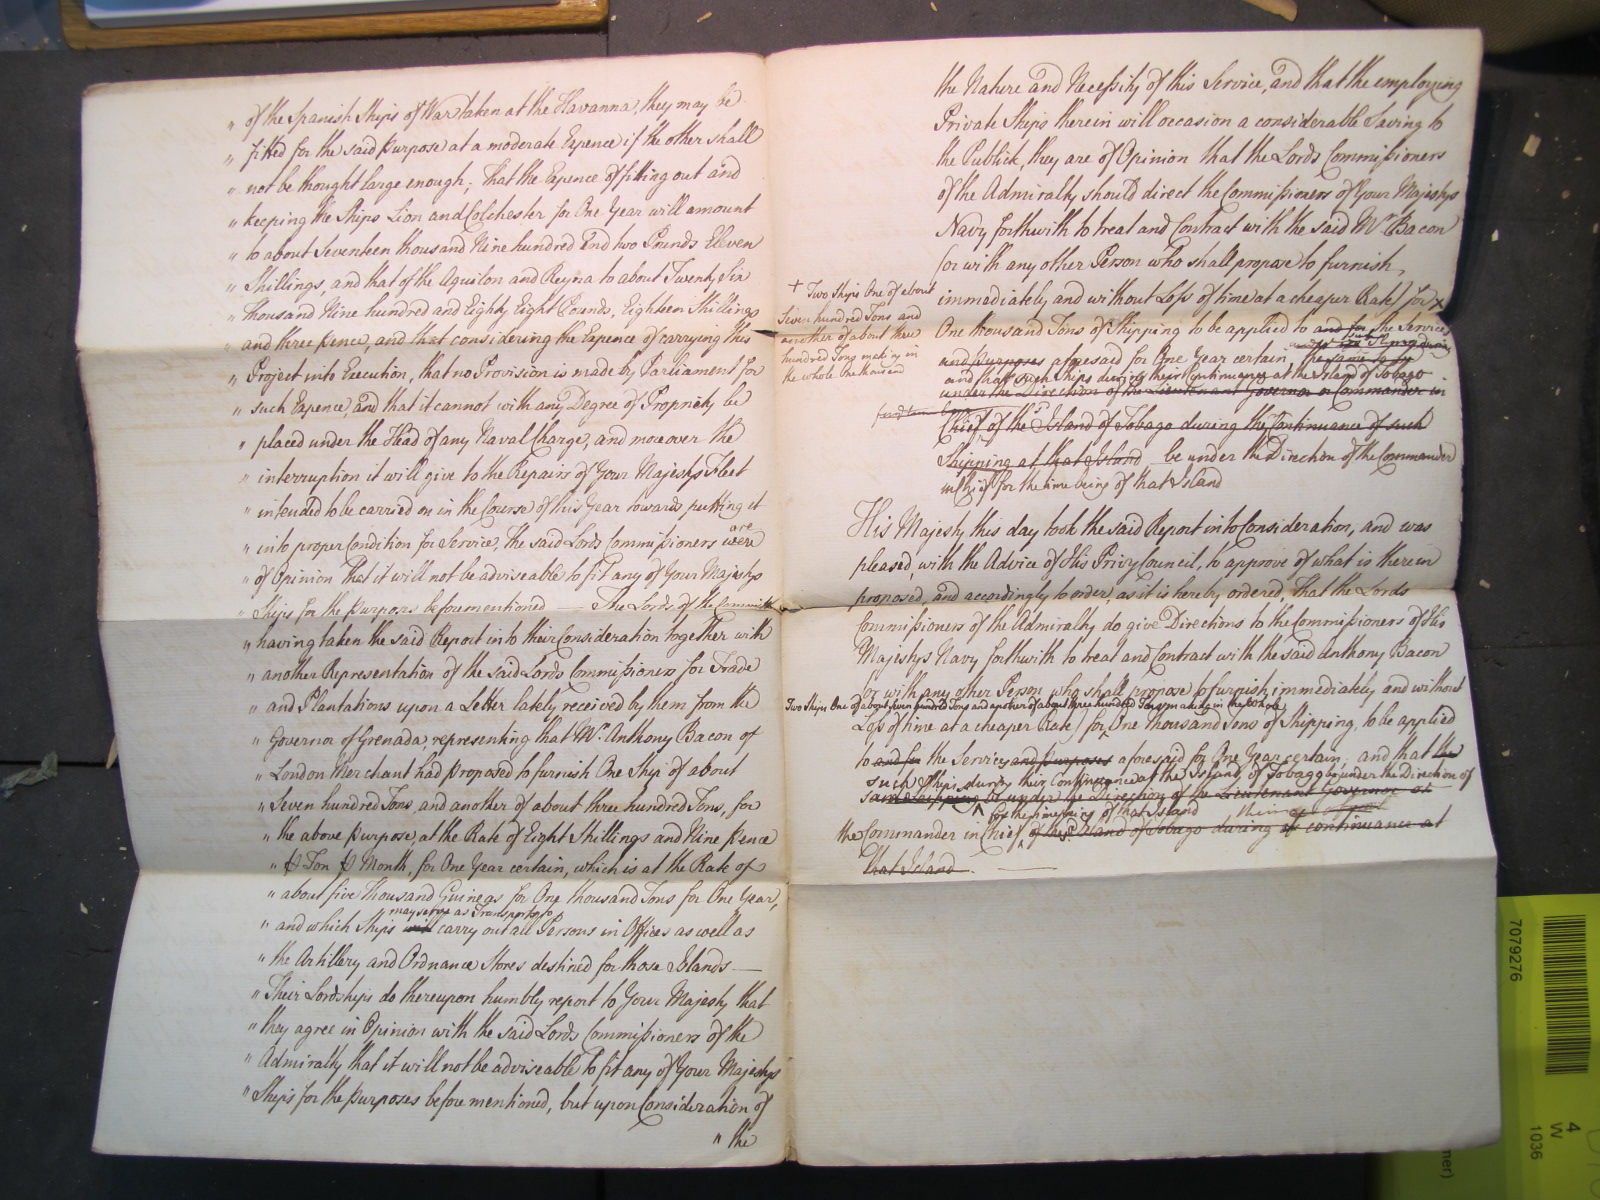 " of the Spanish Ships of War taken at the Havanna, they may be
" fitted for the said purpose at a moderate Expence if the other shall
" not be thought large enough; That the Expence of fitting out and
" keeping the Ships Lion and Colchester for One Year will amount
" to about Seventeen thousand Nine hundred and two Pounds Eleven
" Shillings, and that of the Aquilon and Reyna to about Twenty Six
" Thousand Nine hundred and Eighty Eight Pounds, Eighteen Shillings
" and three pence, and that considering the Expence of carrying this
" Project into Execution, that no Provision is made by Parliament for
" such Expence, and that it cannot with any Degree of Propriety be
" placed under the Head of any Naval Charge, and moreover the
" interruption it will give to the Repairs of Your Majestys Fleet
" intended to be carried on in the Course of this Year towards putting it
are
" into proper Condition for Service, The said Lords Commissioners were
" of Opinion That it will not be adviseable to fit any of Your Majestys
" Ships for the purposes beforementioned — The Lords of the Committee
" having taken the said Report into their Consideration together with
" another Representation of the said Lords Commissioners for Trade
" and Plantations upon a Letter lately received by them from the
" Governor of Grenada, representing that Mr. Anthony Bacon of
" London Merchant had proposed to furnish One Ship of about
" Seven hundred Tons, and another of about three hundred Tons, for
" the above purpose, at the Rate of Eight Shillings and Nine pence
" ⅌ Ton ⅌ Month, for One Year certain, which is at the Rate of
" about five thousand Guineas for One thousand Tons for One Year,
may serve as Transports to
" and which Ships will carry out all Persons in Offices as well as
" the Artillery and Ordnance Stores destined for those Islands —
" Their Lordships do thereupon humbly report to Your Majesty that
" they agree in Opinion with the said Lords Commissioners of the
" Admiralty that it will not be adviseable to fit any of Your Majestys
" Ships for the purposes before mentioned, but upon Consideration of
" the
the Nature and Necessity of this Service, and that the employing
Private Ships therein will occasion a considerable Saving to
the Publick, they are of Opinion that the Lords Commissioners
of the Admiralty should direct the Commissioners of Your Majestys
Navy forthwith to treat and Contract with the said Mr. Bacon
(or with any other Person who shall propose to furnish,
immediately and without Loss of time at a cheaper Rate) for +
+ Two Ships One of about
Seven hundred Tons and
another of about three
hundred Tons making in
the whole One thousand
One thousand Tons of Shipping to be applied to and for the Services
and purposes aforesaid for One Year certain, the same to be
and that such Ships during their Continuance at the Island of Tobago
under the Direction of the Lieutenant Governor or Commander in
Chief of the sd. Island of Tobago during the Continuance of such
Shipping at that Island be under the Direction of the Commander
in Chief for the time being of that Island
His Majesty this day took the said Report into Consideration, and was
pleased, with the Advice of His Privy Council, to approve of what is therein
proposed, and accordingly to order, as it is hereby ordered, That the Lords
Commissioners of the Admiralty do give Directions to the Commissioners of His
Majestys Navy forthwith to treat and Contract with the said Anthony Bacon
(or with any other Person who shall propose to furnish immediately and without
Two Ships One of about seven hundred Tons and another of about three hundred Tons making in the whole
Loss of time at a cheaper Rate) for One thousand Tons of Shipping, to be applied
to and for the Services and purposes aforesaid for One Year certain, and that the
such Ships during their Continuance at the Island of Tobago be under the Direction of
same Shipping be under the Direction of the Lieutenant Governor or
for the time being of that Island
the Commander in Chief of the sd. Island of Tobago during continuance at
that Island. —
7079276
4
W
1036